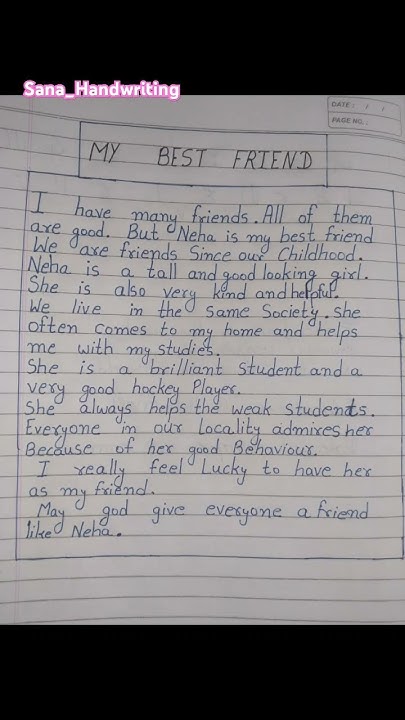 Sana_Handwriting
DATE: / /
PAGE NO.:
MY BEST FRIEND
I have many friends. All of them
are good. But Neha is my best friend
We are friends Since our Childhood.
Neha is a tall and good looking girl.
She is also very kind and helpful.
We live in the same Society. She
often comes to my home and helps
me with my studies.
She is a brilliant student and a
very good hockey Player.
She always helps the weak students.
Everyone in our locality admires her
Because of her good Behaviour.
I really feel Lucky to have her
as my friend.
May god give everyone a friend
like Neha.